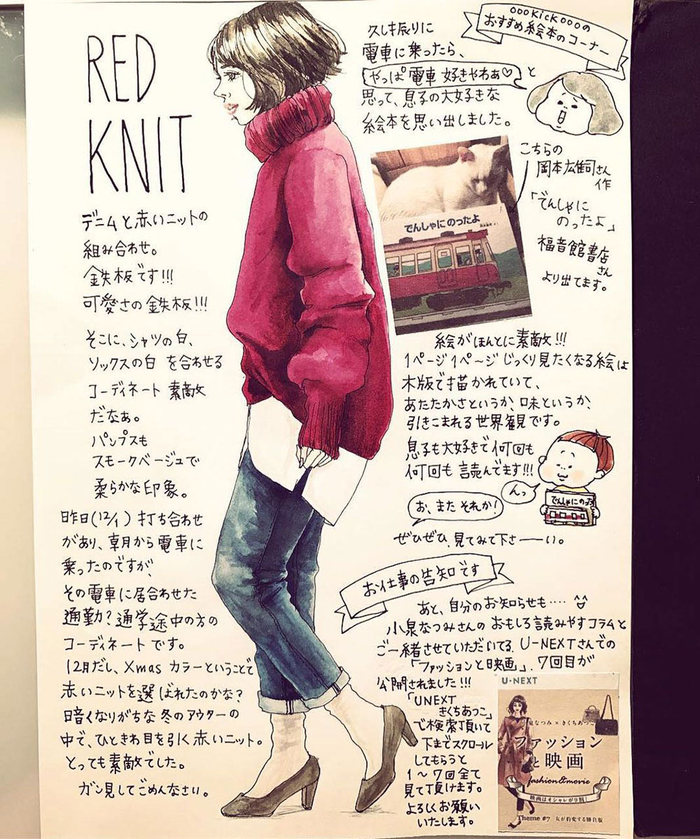 RED
KNIT
デニムと赤いニットの
組み合わせ。
鉄板です!!!
可愛さの鉄板!!!
そこに、シャツの白、
ソックスの白 を合わせる
コーディネート 素敵
だなぁ。
パンプスも
スモークベージュで
柔らかな印象。
昨日(12/1) 打ち合わせ
があり、朝から電車に
乗ったのですが、
その電車に居合わせた
通勤?通学途中の方の
コーディネートです。
12月だし、Xmas カラーということで
赤いニットを選ばれたのかな?
暗くなりがちな 冬のアウターの
中で、ひときわ目を引く赤いニット。
とっても素敵でした。
ガン見してごめんなさい。
oookickoooの
おすすめ絵本のコーナー
久しぶりに
電車に乗ったら、
やっぱ電車 好きやわぁ♡ と
思って、息子の大好きな
絵本を思い出しました。
こちらの
岡本雄司さん
作
「でんしゃに
のったよ」
福音館書店
さん
より出てます。
でんしゃにのったよ
絵がほんとに素敵!!!
1ページ1ページ じっくり見たくなる絵は
木版で描かれていて、
あたたかさというか、味というか、
引きこまれる世界観です。
息子も大好きで何回も
何回も 読んでます!!!
んっ
でんしゃにのったよ
お、また それか!
ぜひぜひ、見てみて下さーーい。
お仕事の告知です
あと、自分のお知らせも‥‥
小泉なつみさんの おもしろ読みやすコラムと
ご一緒させていただいてる、U-NEXTさんでの
「ファッションと映画」、7回目が
公開されました!!!
「UNEXT
きくちあつこ」
で検索頂いて
下までスクロール
してもらうと
1〜7回全て
見て頂けます。
よろしくお願い
いたします。
U-NEXT
小泉なつみ × きくちあつこ
ファッション
と映画
fashion&movie
映画はオシャレが9割!
Theme #7